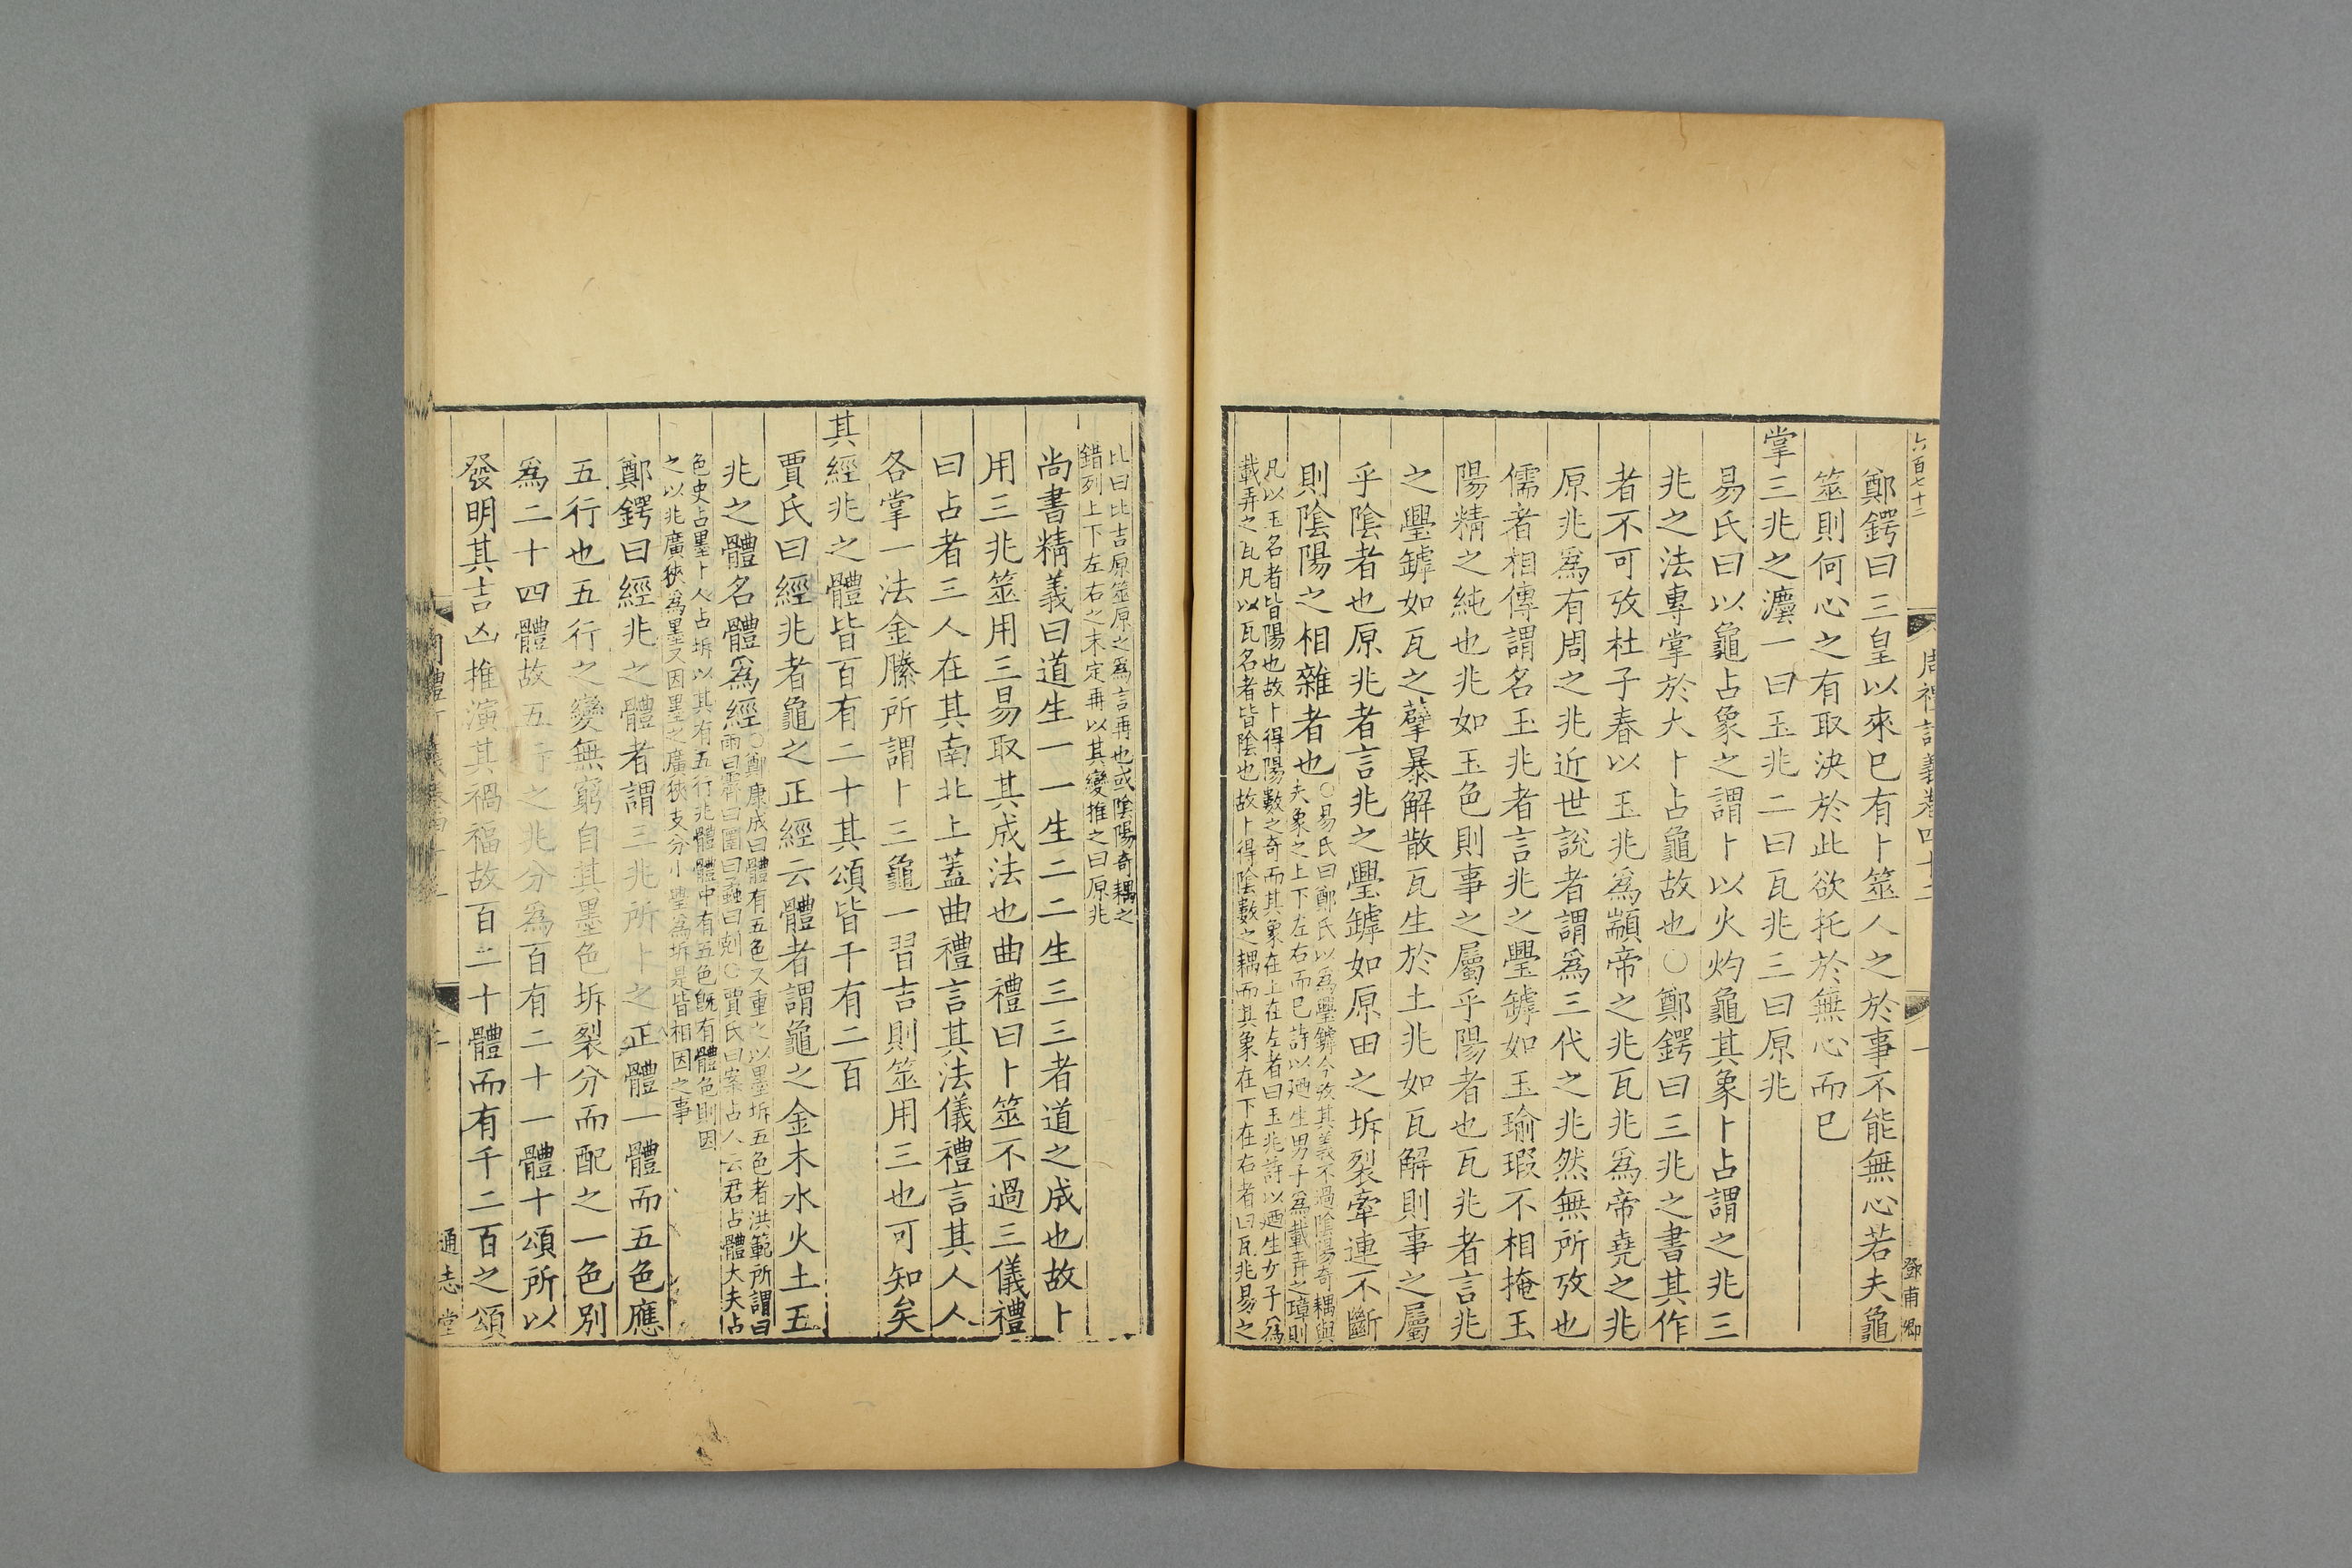 六百七十二
周禮訂義卷四十二
一
鄧甫卿
鄭鍔曰三皇以來已有卜筮人之於事不能無心若夫龜
筮則何心之有取決於此欲托於無心而已
掌三兆之灋一曰玉兆二曰瓦兆三曰原兆
易氏曰以龜占象之謂卜以火灼龜其象卜占謂之兆三
兆之法專掌於大卜占龜故也○鄭鍔曰三兆之書其作
者不可攷杜子春以玉兆爲顓帝之兆瓦兆爲帝堯之兆
原兆爲有周之兆近世說者謂爲三代之兆然無所攷也
儒者相傳謂名玉兆者言兆之璺罅如玉瑜瑕不相掩玉
陽精之純也兆如玉色則事之屬乎陽者也瓦兆者言兆
之璺罅如瓦之㼿暴解散瓦生於土兆如瓦解則事之屬
乎陰者也原兆者言兆之璺罅如原田之坼裂牽連不斷
則陰陽之相雜者也○易氏曰鄭氏以爲璺罅今攷其義不過陰陽奇耦與
夫象之上下左右而已詩以廼生男子爲載弄之璋則
凡以玉名者皆陽也故卜得陽數之奇而其象在上在左者曰玉兆詩以廼生女子爲
載弄之瓦凡以瓦名者皆陰也故卜得陰數之耦而其象在下在右者曰瓦兆易之
比曰比吉原筮原之爲言再也或陰陽奇耦之
錯列上下左右之未定再以其變推之曰原兆
尚書精義曰道生一一生二二生三三者道之成也故卜
用三兆筮用三易取其成法也曲禮曰卜筮不過三儀禮
曰占者三人在其南北上蓋曲禮言其法儀禮言其人人
各掌一法金縢所謂卜三龜一習吉則筮用三也可知矣
其經兆之體皆百有二十其頌皆千有二百
賈氏曰經兆者龜之正經云體者謂龜之金木水火土五
兆之體名體爲經○鄭康成曰體有五色又重之以墨坼五色者洪範所謂曰
雨曰霽曰圛曰蟊曰剋○賈氏曰案占人云君占體大夫占
色史占墨卜人占坼以其有五行兆體體中有五色旣有體色則因
之以兆廣狹爲墨又因墨之廣狹支分小璺爲坼是皆相因之事
鄭鍔曰經兆之體者謂三兆所卜之正體一體而五色應
五行也五行之變無窮自其墨色坼裂分而配之一色別
爲二十四體故五行之兆分爲百有二十一體十頌所以
發明其吉凶推演其禍福故百二十體而有千二百之頌
二
通志堂